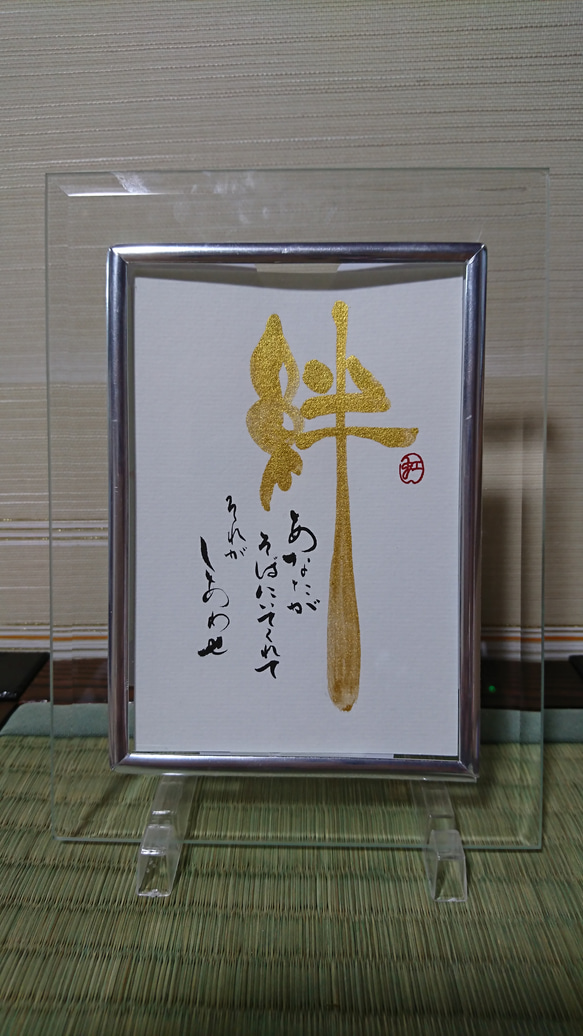 絆
あなたが
そばにいてくれて
それが
しあわせ